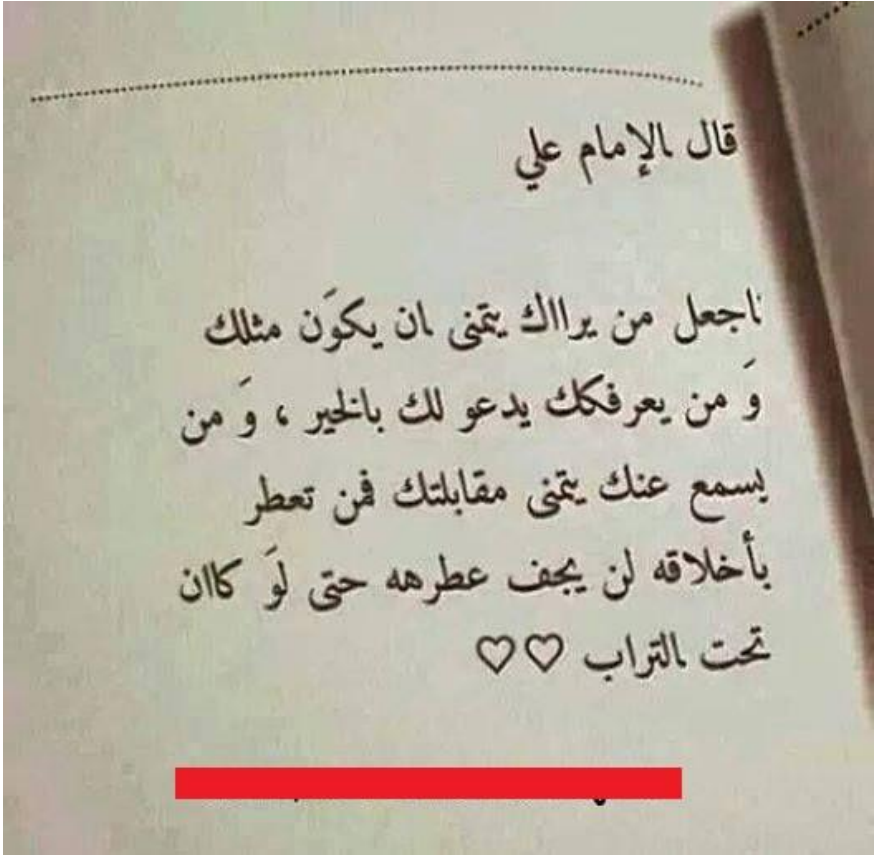 قال الإمام علي
اجعل من يرااك يتمنى ان يكوَن مثلك
وَ من يعرفكك يدعو لك بالخير ، وَ من
يسمع عنك يتمنى مقابلتك فمن تعطر
بأخلاقه لن يجف عطرهه حتى لوَ كاان
تحت التراب ♡♡